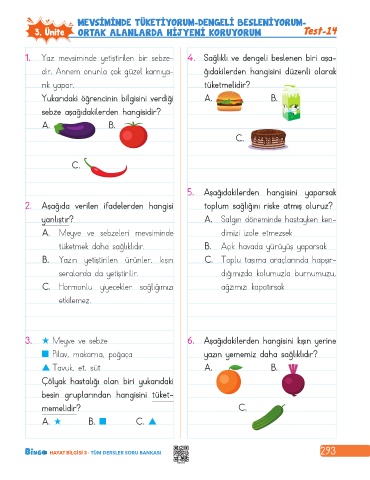 3. Ünite
MEVSİMİNDE TÜKETİYORUM-DENGELİ BESLENİYORUM-
ORTAK ALANLARDA HİJYENİ KORUYORUM
Test-14
1. Yaz mevsiminde yetiştirilen bir sebze-
dir. Annem onunla çok güzel karnıya-
rık yapar.
Yukarıdaki öğrencinin bilgisini verdiği
sebze aşağıdakilerden hangisidir?
A.
B.
C.
2. Aşağıda verilen ifadelerden hangisi
yanlıştır?
A. Meyve ve sebzeleri mevsiminde
tüketmek daha sağlıklıdır.
B. Yazın yetiştirilen ürünler, kışın
seralarda da yetiştirilir.
C. Hormonlu yiyecekler sağlığımızı
etkilemez.
3. ★ Meyve ve sebze
■ Pilav, makarna, poğaça
▲ Tavuk, et, süt
Çölyak hastalığı olan biri yukarıdaki
besin gruplarından hangisini tüket-
memelidir?
A. ★ B. ■ C. ▲
4. Sağlıklı ve dengeli beslenen biri aşa-
ğıdakilerden hangisini düzenli olarak
tüketmelidir?
A.
B.
C.
5. Aşağıdakilerden hangisini yaparsak
toplum sağlığını riske atmış oluruz?
A. Salgın döneminde hastayken ken-
dimizi izole etmezsek
B. Açık havada yürüyüş yaparsak
C. Toplu taşıma araçlarında hapşır-
dığımızda kolumuzla burnumuzu,
ağzımızı kapatırsak
6. Aşağıdakilerden hangisini kışın yerine
yazın yememiz daha sağlıklıdır?
A.
B.
C.
BİNGO HAYAT BİLGİSİ 3 - TÜM DERSLER SORU BANKASI
293